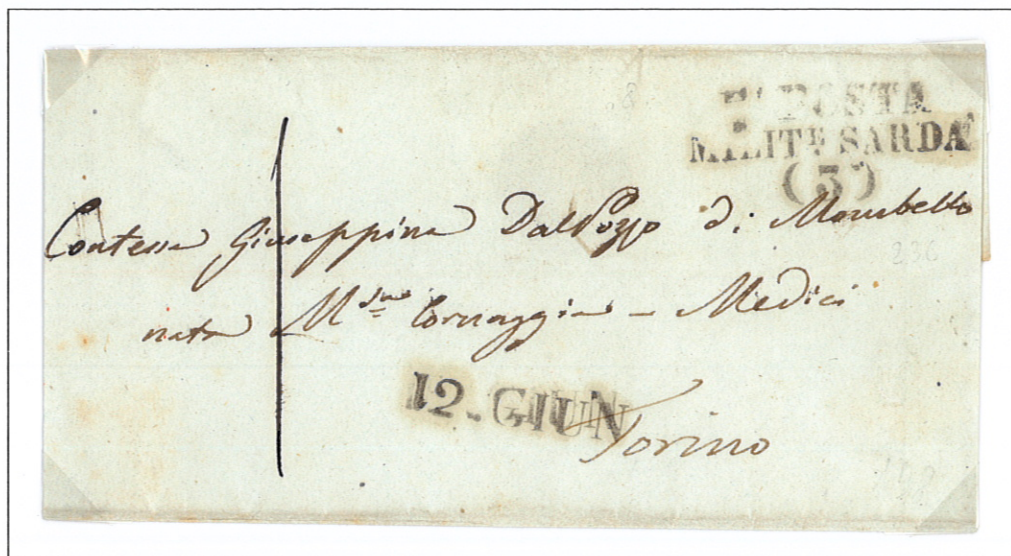 Rª POSTA
MILITᴱ SARDA
(3)
Contessa Giuseppina DalPozzo di Mombello
nata M.sa Cornaggia - Medici
12. GIUN
Torino
236